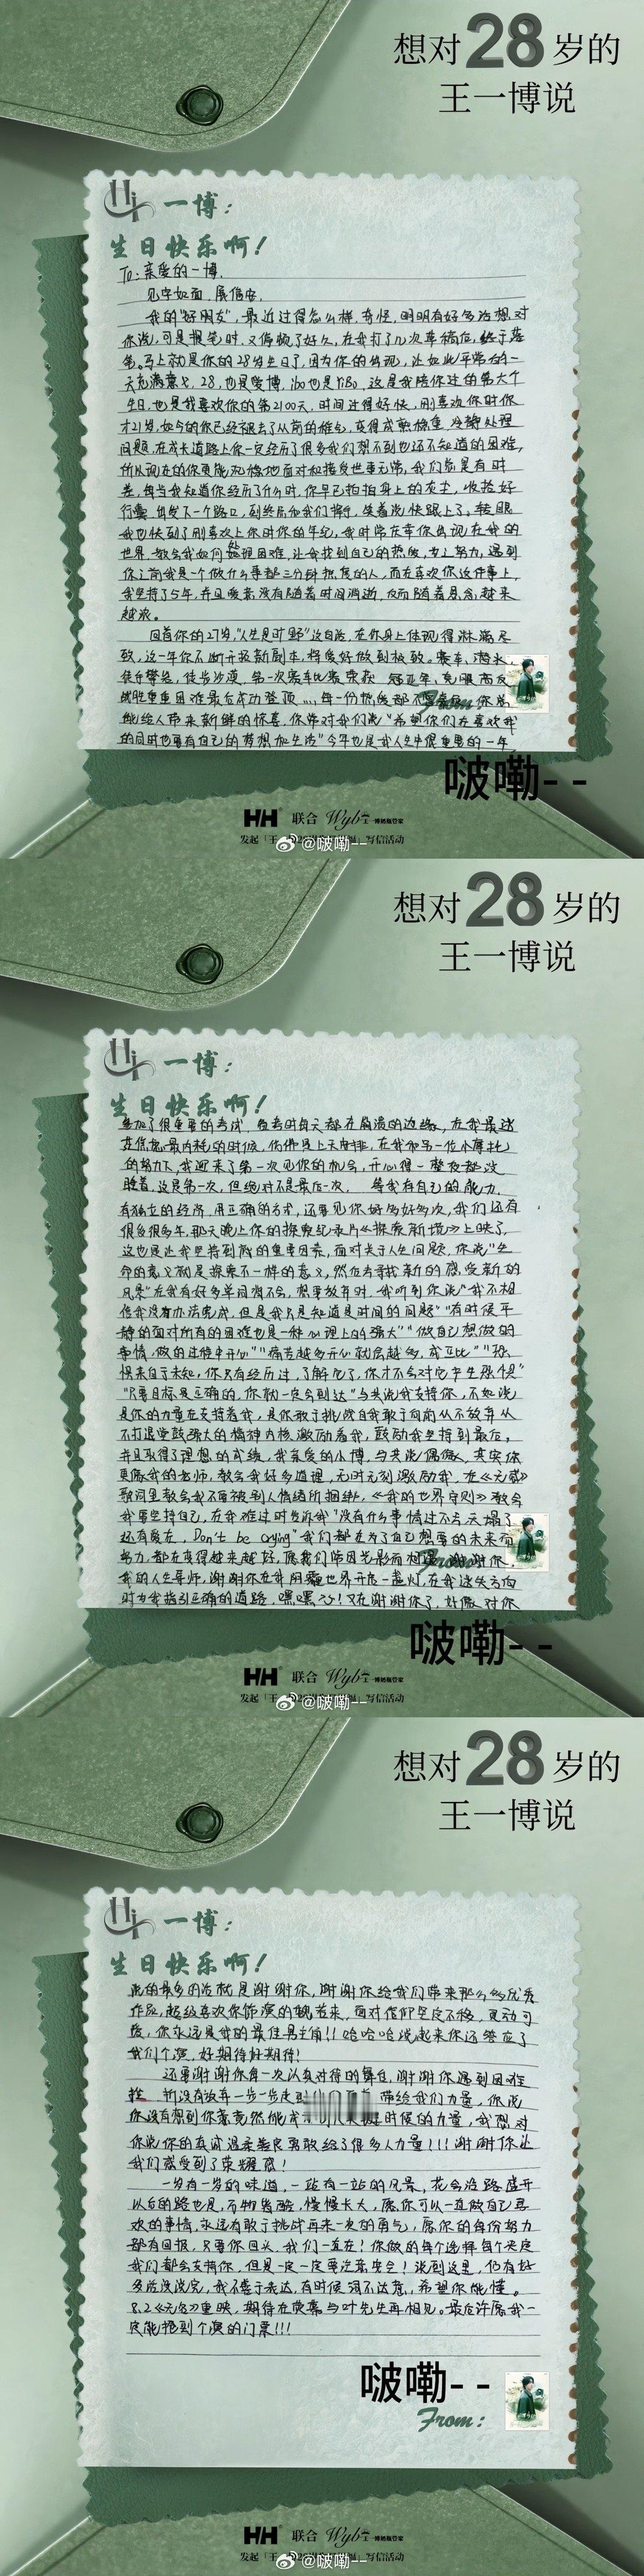 想对28岁的
王一博说
Hi 一博：
生日快乐啊！
To：亲爱的一博，
见字如面，展信安。
我的"好朋友"，最近过得怎么样，奇怪，明明有好多话想对
你说，可是提笔时，又停顿了好久，在我打了几次草稿后，终于落
笔。马上就是你的28岁生日了，因为你的出现，让如此平常的一
天充满意义，28，也是爱博，ibo也是YiBo，这是我陪你过的第六个
生日，也是我喜欢你的第2100天，时间过得好快，刚喜欢你时你
才21岁，如今的你已经褪去了从前的稚气，变得成熟稳重，冷静处理
问题，在成长道路上你一定经历了很多我们想不到也还不知道的困难，
所以现在的你更能沉稳地面对和接受世事无常，我们总是有时
差，每当我知道你经历了什么时，你早已拍拍身上的灰尘，收拾好
行囊，出发下一个路口，到终点和我们挥手，笑着说快跟上了。转眼
我也快到了刚喜欢上你时你的年纪，我时常庆幸你出现在我的
世界，教会我如何处理困难，让我找到自己的热爱，去努力，遇到
你之前我是一个做什么事都三分钟热度的人，而在喜欢你这件事上，
我坚持了5年，并且喜欢没有随着时间消逝，反而随着思念，越来
越浓。
回首你的27岁，"人生是旷野"这句话，在你身上体现得淋漓尽
致，这一年你不断开拓新副本，将爱好做到极致。赛车，潜水，
徒手攀岩，徒步沙漠，第一次赛车比赛荣获 冠亚军，克服高反
战胜重重困难最后成功登顶……每一份热爱都不
能给人带来新鲜的惊喜，你常对我们说"希望你们在喜欢我
的同时也要有自己的梦想和生活"今年也是我人生中很重要的一年，
From：
啵嘞--
HH 联合 Wyb王一博奶瓶管家
@啵嘞--
想对28岁的
王一博说
Hi 一博：
生日快乐啊！
参加了很重要的考试，备考时每天都在崩溃的边缘，在我最迷
茫焦虑最内耗的时候，仿佛是上天安排，在我和另一位小摩托
的努力下，我迎来了第一次见你的机会，开心得一整夜都没
睡着，这是第一次，但绝对不是最后一次，等我有自己的能力，
有独立的经济，用正确的方式，还要见你好多好多次，我们还有
很多很多年，那天晚上你的探索纪录片《探索新境》上映了，
这也是让我坚持到底的重要因素，面对关于人生问题，你说"生
命的意义就是探索不一样的意义，然后去寻找新的感受新的
风景"在我有好多单词背不会，想要放弃时，我听到你说"我不相
信我没有办法完成，但是我只是知道是时间的问题""有时候平
静的面对所有的困难也是一种心理上的强大""做自己想做的
事情，做的过程中开心""痛苦越多开心就会越多，成正比""恐
惧来自于未知，你只有经历过，了解它了，你才不会对它产生恐惧"
"只要目标是正确的，你就一定会到达"与其说我支持你，不如说
是你的力量在支持着我，是你敢于挑战自我敢于向前从不放弃从
不打退堂鼓强大的精神内核，激励着我，鼓励我坚持到最后，
并且取得了理想的成绩，我亲爱的小博，与其说偶像，其实你
更像我的老师，教会我好多道理，无时无刻激励我，在《无感》
歌词里教会我不要被别人情绪所捆绑，《我的世界守则》教会
我要坚持自己，在我难过时告诉我"没有什么事情过不去，天塌了
还有爱在，Don't be crying"我们都在为了自己想要的未来而
努力，都在变得越来越好，愿我们
我的人生导师，谢谢你在我阴霾世界开启一盏灯，在我迷失方向
时为我指引正确的道路，嘿嘿 又在谢谢你了，好像对你
From：
啵嘞--
HH 联合 Wyb王一博奶瓶管家
@啵嘞--
想对28岁的
王一博说
Hi 一博：
生日快乐啊！
说的最多的话就是谢谢你，谢谢你给我们带来那么多优秀
作品，超级喜欢你能演的魏若来，面对信仰坚定不移，灵动可
爱，你永远是我的最佳男主角！！哈哈哈说起来你还答应了
我们个演，好期待好期待！
还要谢谢你每一次认真对待的舞台，谢谢你遇到困难
所没有放弃一步一步走到 带给我们力量，你说
你没有想到你竟然能成 时候的力量，我想对
你说你的真诚温柔善良勇敢给了很多人力量！！！谢谢你让
我们感受到了荣耀感！
一岁有一岁的味道，一站有一站的风景，花会沿路盛开
以后的路也是，万物皆酿，慢慢长大，愿你可以一直做自己喜
欢的事情，永远有敢于挑战再来一次的勇气，愿你的每份努力
都有回报，只要你回头，我们一直在！你做的每个选择每个决定
我们都会支持你，但是一定一定要注意安全！说到这里，仍有好
多话没说完，我不善于表达，有时候词不达意，希望你能懂。
8.2《无名》重映，期待在荧幕与叶先生再相见。最后许愿我一
定能抢到个演的门票！！！
啵嘞--
From：
HH 联合 Wyb王一博奶瓶管家
@啵嘞--